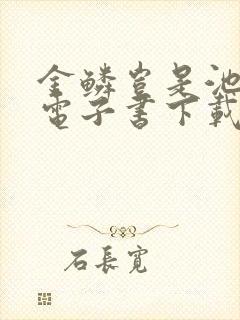 金鱗豈是池
電子書下載
石長寬